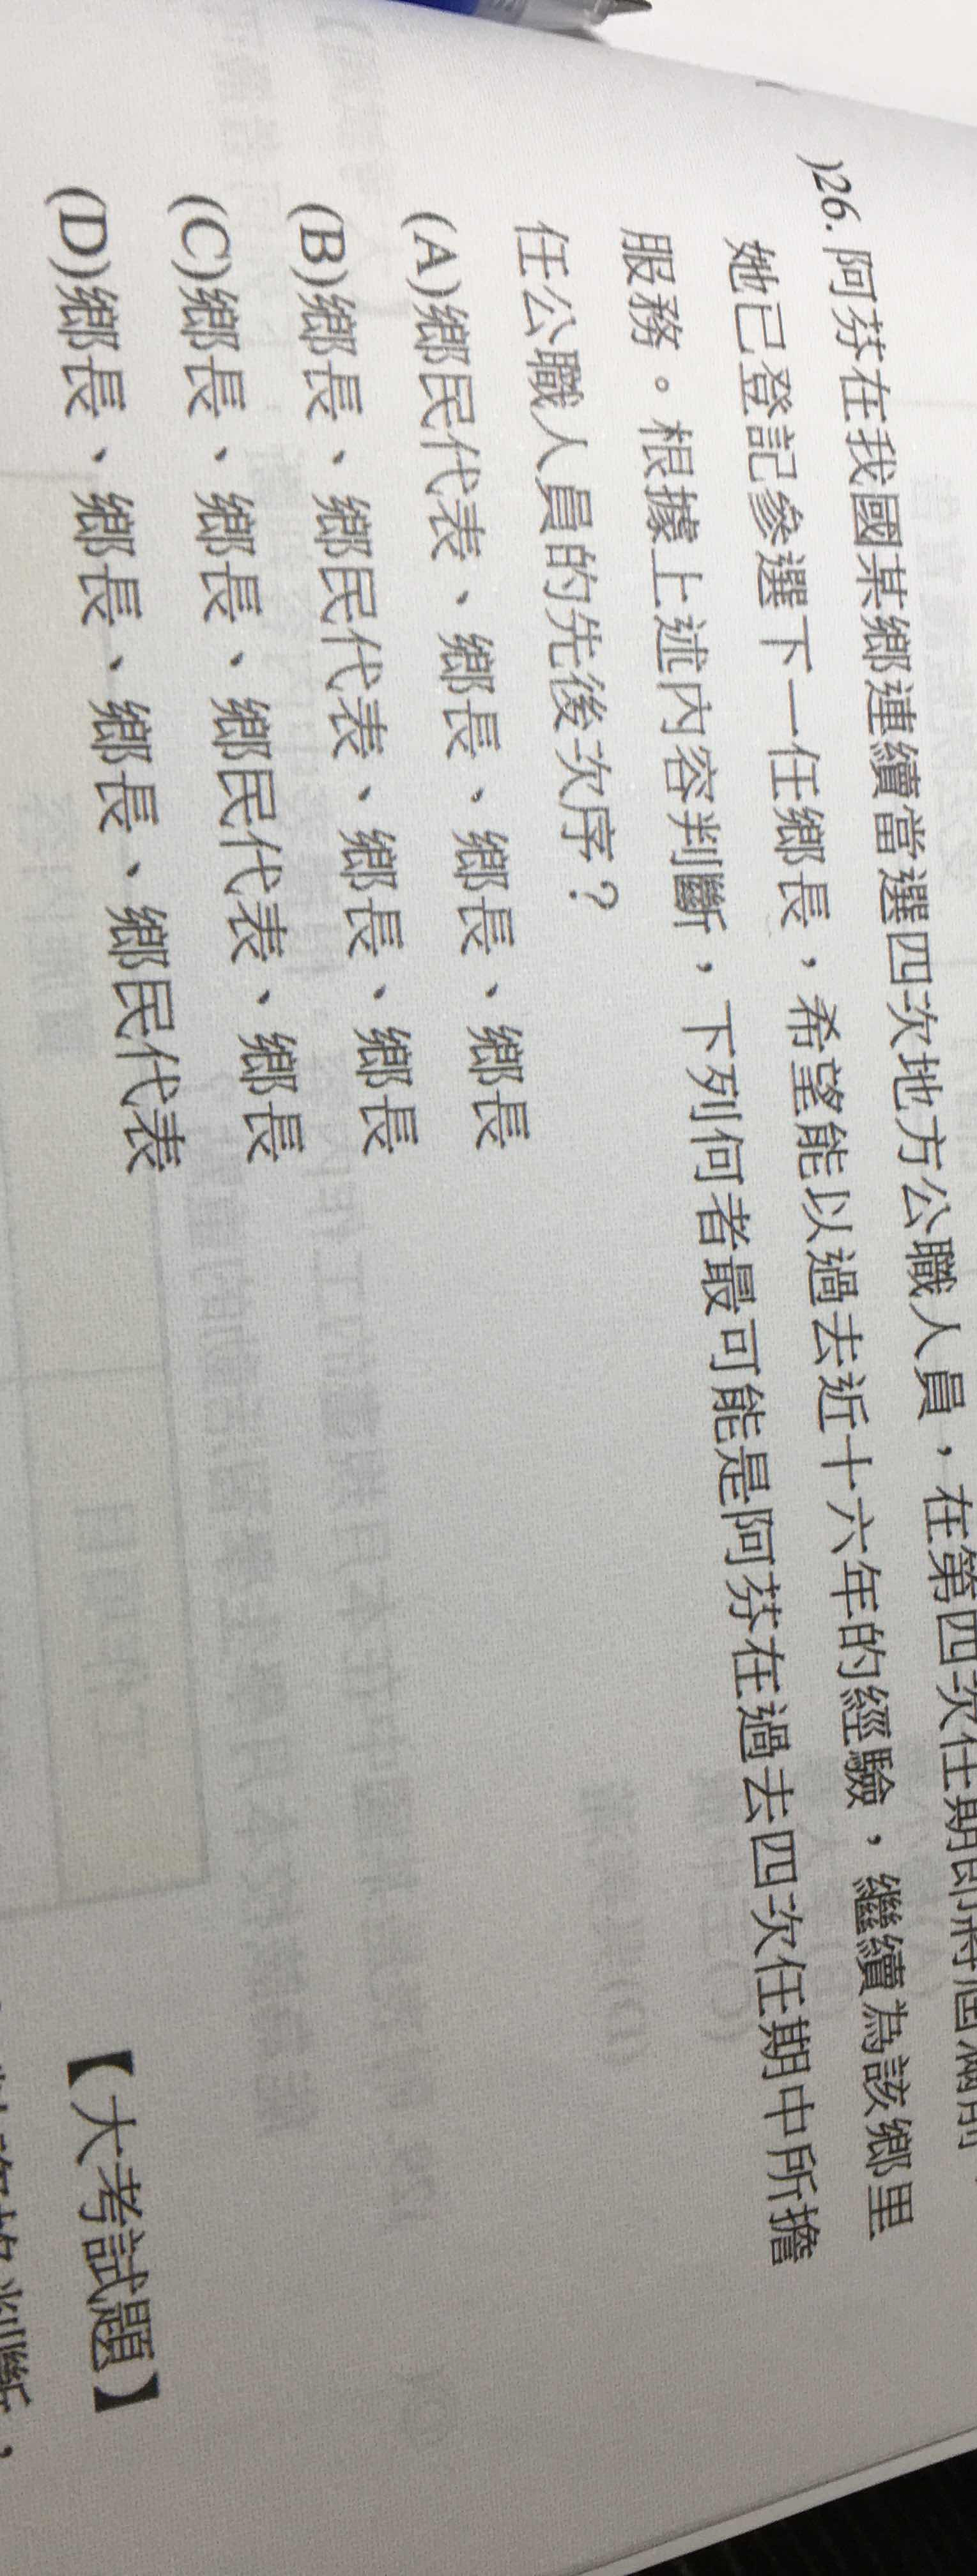 )26. 阿芬在我國某鄉連續當選四次地方公職人員，在第四次任期即將屆滿前，
她已登記參選下一任鄉長，希望能以過去近十六年的經驗，繼續為該鄉里
服務。根據上述內容判斷，下列何者最可能是阿芬在過去四次任期中所擔
任公職人員的先後次序？
(A)鄉民代表、鄉長、鄉長、鄉長
(B)鄉長、鄉民代表、鄉長、鄉長
(C)鄉長、鄉長、鄉民代表、鄉長
(D)鄉長、鄉長、鄉長、鄉民代表
【大考試題】